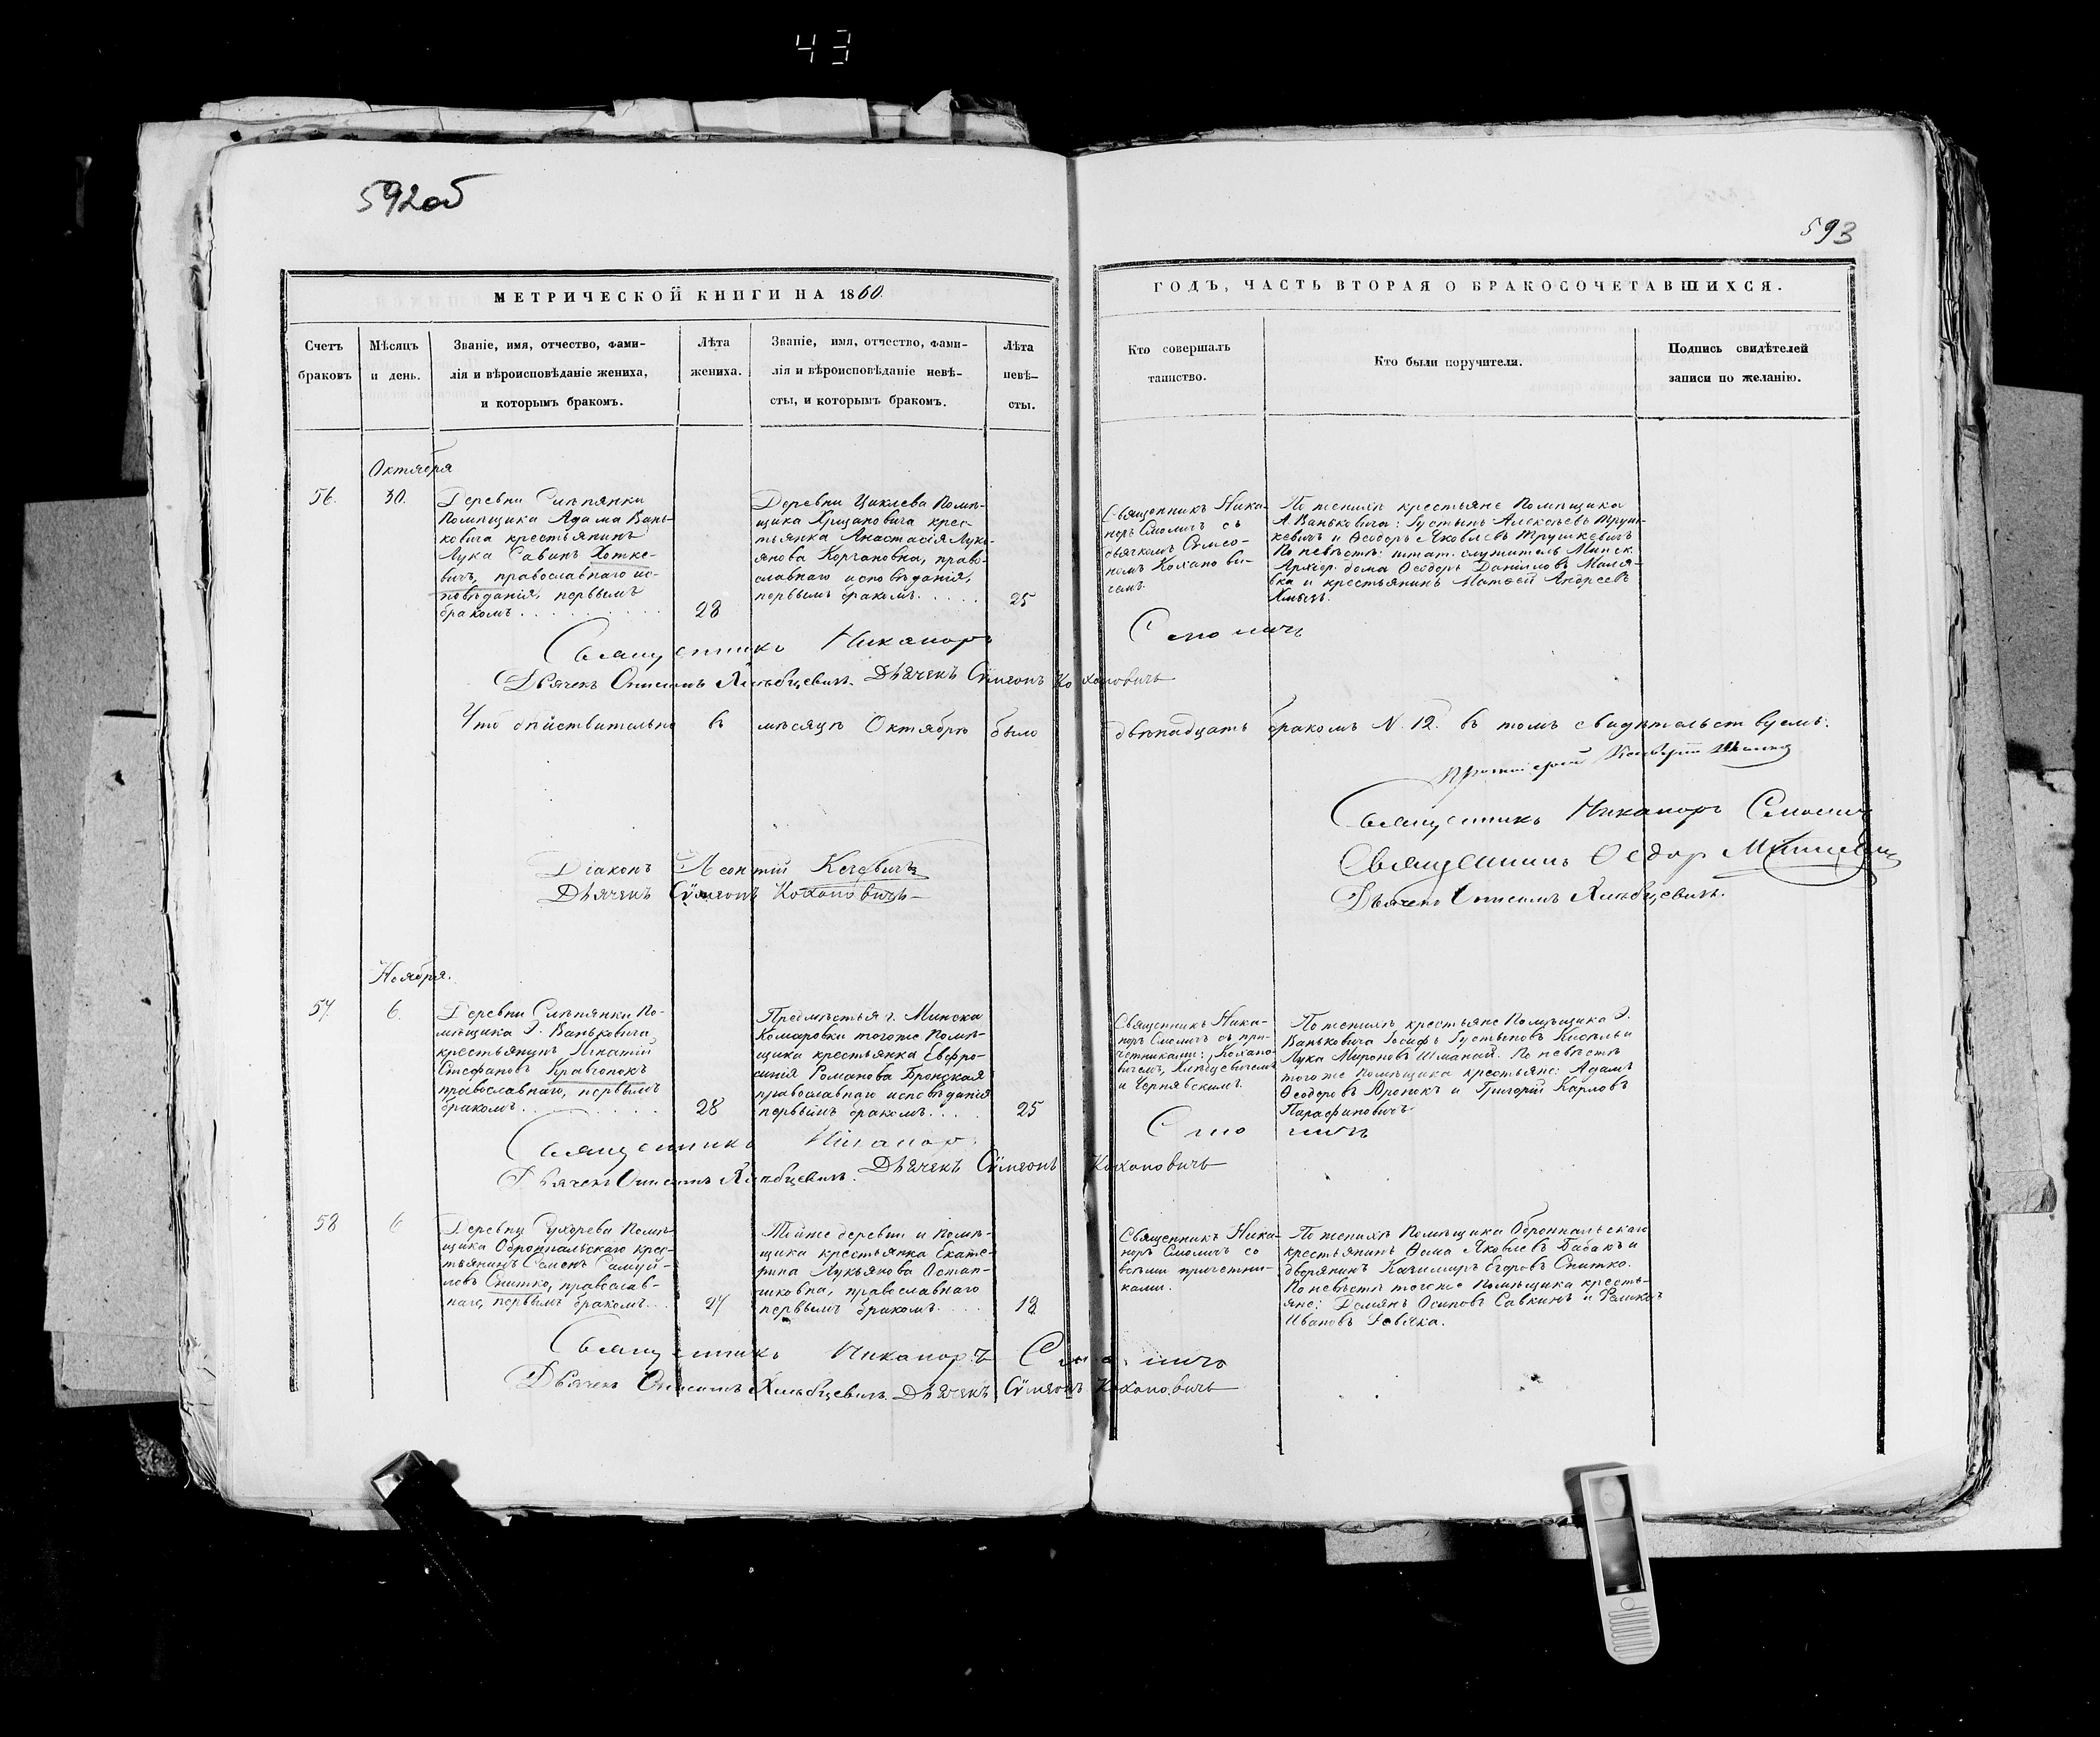 43
592об
593
МЕТРИЧЕСКОЙ КНИГИ НА 1860
ГОДЪ, ЧАСТЬ ВТОРАЯ О БРАКОСОЧЕТАВШИХСЯ.
Счетъ
браковъ
Мѣсяцъ
и день.
Званіе, имя, отчество, фами-
лія и вѣроисповѣданіе жениха,
и которымъ бракомъ.
Лѣта
жениха.
Званіе, имя, отчество, фами-
лія и вѣроисповѣданіе невѣ-
сты, и которымъ бракомъ.
Лѣта
невѣ-
сты.
Кто совершалъ
таинство.
Кто были поручители.
Подпись свидѣтелей
записи по желанію.
Октября
56.
30.
Деревни Слѣпянки
Помѣщика Адама Вань-
ковича крестьянинъ
Лука Савинъ Хотке-
вичъ, православнаго ис-
повѣданія, первымъ
бракомъ
28
Деревни Цнклева Помѣ-
щика Хрщановича крес-
тьянка Анастасія Лукі-
янова Коргановна, право-
славнаго исповѣданія,
первымъ бракомъ
25
Священникъ Ника-
норъ Смоличъ съ
дьячкомъ Симео-
номъ Коханови-
чемъ.
По женихѣ крестьяне Помѣщика
А. Ваньковича: Густынъ Алексѣевъ Труш-
кевичъ и Ѳеодоръ Яковлевъ Трушкевичъ
По невѣстѣ: штат. служитель Минск.
Архіер. дома Ѳеодоръ Даниловъ Маля-
вка и крестьянинъ Матѳей Андреевъ
Священникъ Никаноръ Смоличъ
Дьячекъ Онисимъ Хлѣбцевичъ. Дьячекъ Сѵмеонъ Кохановичь
Что дѣйствительно въ мѣсяцѣ Октябрѣ было двѣнадцать браковъ N. 12. въ томъ свидѣтельствуемъ:
Протоіерей
Священникъ Никаноръ Смоличъ
Діаконъ Леонтій Кечевичъ
Священникъ Ѳедоръ
Дьячекъ Сѵмеонъ Кохановичь
Дьячекъ Онисимъ Хлѣбцевичъ.
Ноября.
57
6.
Деревни Слѣпянки По-
мѣщика Э. Ваньковича
крестьянинъ Игнатій
Стефановъ Кравчонокъ
православнаго, первымъ
бракомъ
28
Предмѣстья г. Минска
Комаровки тогоже Помѣ-
щика крестьянка Евфро-
синія Романова Бронзкая
православнаго исповѣданія
первымъ бракомъ
25
Священникъ Ника-
норъ Смоличъ съ при-
четниками: Кохано-
вичемъ, Хлѣбцевичемъ
и Чернявскимъ.
По женихѣ крестьяне Помѣщика Э.
Ваньковича Іосифъ Густыновъ Кисель и
Лука Мироновъ Шманай. По невѣстѣ
тогоже помѣщика крестьяне: Адамъ
Ѳеодоровъ Дронокъ и Григорій Карловъ
Парафиновичъ
Священникъ Никаноръ Смоличъ
Дьячекъ Онисимъ Хлѣбцевичъ. Дьячекъ Сѵмеонъ Кохановичь
58
6
Деревни Сухорева Помѣ-
щика Обромпальскаго крес-
тьянинъ Семенъ Самуй-
ловъ Снитко, православ-
наго, первымъ бракомъ
27
Тойже деревни и помѣ-
щика крестьянка Екате-
рина Лукьянова Остап-
чиковна, православнаго
первымъ бракомъ
18
Священникъ Ника-
норъ Смоличъ со
всѣми причетни-
ками.
По женихѣ Помѣщика Обромпальскаго
крестьянинъ Ѳома Яковлевъ Бабакъ и
дворянинъ Казимиръ Егоровъ Снитко.
По невѣстѣ тогоже помѣщика кресть-
яне: Демянъ Осиповъ Савкинъ и Феликсъ
Ивановъ
Священникъ Никаноръ Смоличъ
Дьячекъ Онисимъ Хлѣбцевичъ. Дьячекъ Сѵмеонъ Кохановичь